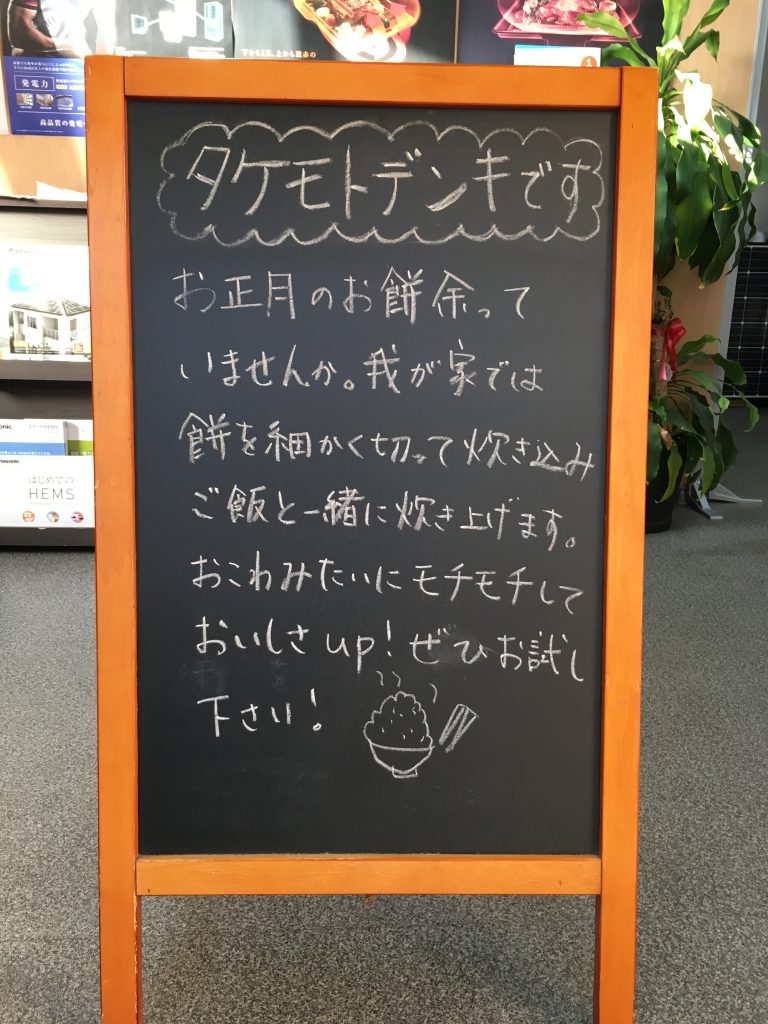 下から2段、上から遠赤の
発電力
高品質の発電
Panasonic
はじめての
HEMS
タケモトデンキです
お正月のお餅余って
いませんか。我が家では
餅を細かく切って炊き込み
ご飯と一緒に炊き上げます。
おこわみたいにモチモチして
おいしさup！ぜひお試し
下さい！